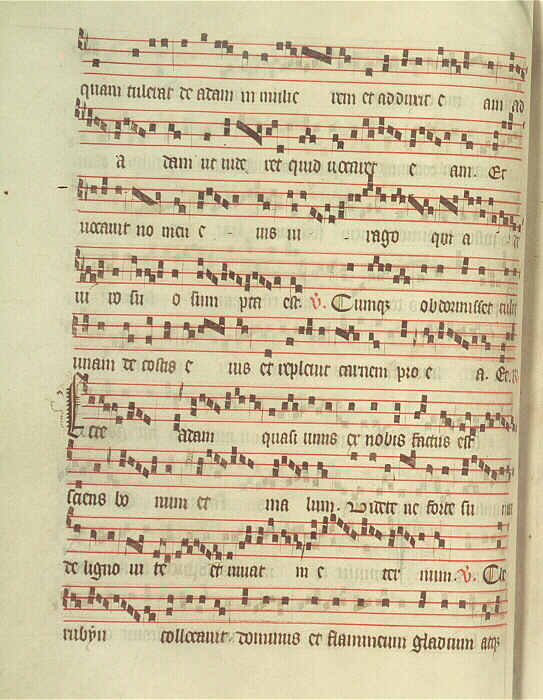 quam tulerat de adam in mulie rem et adduxit e am ad
a dam ut vide ret quid vocaret e am. Et
vocavit no men e ius vi rago qui a de
vi ro su o sum pta est. V. Cumq; obdormisset tulit
unam de costis e ius et replevit carnem pro e a. Et. R.
Ecce adam quasi unus ex nobis factus est
sciens bo num et ma lum. Videte ne forte su mat
de ligno vi te et vivat in e ter num. V. Che
rubyn collocavit dominus et flammeum gladium atq;